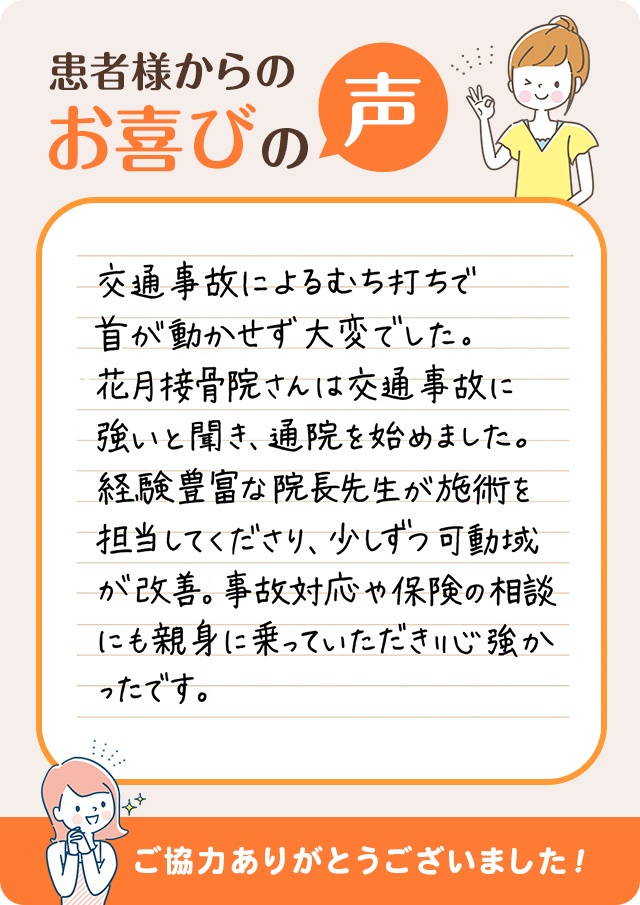 患者様からの
お喜びの声
交通事故によるむち打ちで
首が動かせず大変でした。
花月接骨院さんは交通事故に
強いと聞き、通院を始めました。
経験豊富な院長先生が施術を
担当してくださり、少しずつ可動域
が改善。事故対応や保険の相談
にも親身に乗っていただき心強か
ったです。
ご協力ありがとうございました!